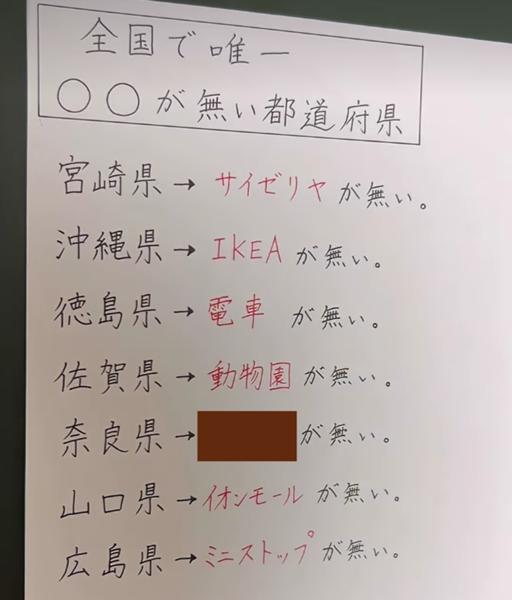 全国で唯一
○○が無い都道府県
宮崎県→サイゼリヤが無い。
沖縄県→IKEAが無い。
徳島県→電車が無い。
佐賀県→動物園が無い。
奈良県→が無い。
山口県→イオンモールが無い。
広島県→ミニストップが無い。